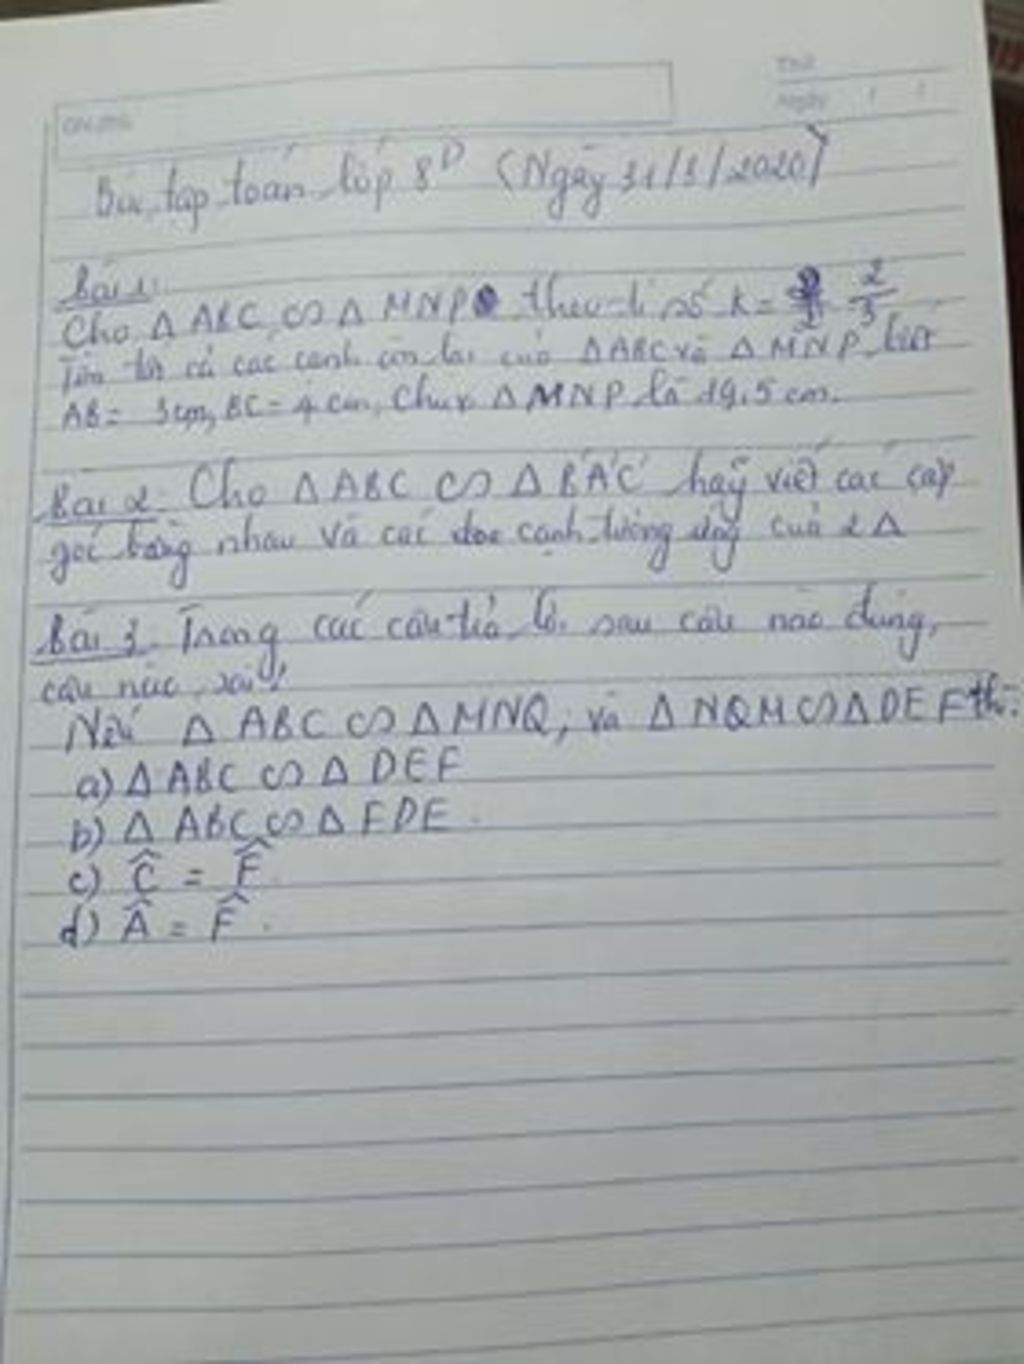 Thứ
Ngày / /
Bài tập toán lớp 8D (Ngày 31/3/2020)
Bài 1:
Cho Δ ABC ∽ Δ MNP theo tỉ số k = 2/3
Tìm tất cả các cạnh còn lại của ΔABC và Δ MNP biết
AB = 3cm, BC = 4 cm, chu vi Δ MNP là 19,5 cm.
Bài 2: Cho Δ ABC ∽ Δ B'A'C' hãy viết các cặp
góc bằng nhau và các cạnh tương ứng của 2 Δ
Bài 3. Trong các câu trả lời sau câu nào đúng,
câu nào sai?
Nếu Δ ABC ∽ Δ MNQ, và Δ NQM ∽ Δ DEF thì:
a) Δ ABC ∽ Δ DEF
b) Δ ABC ∽ Δ FDE.
c) Ĉ = F̂
d) Â = F̂.